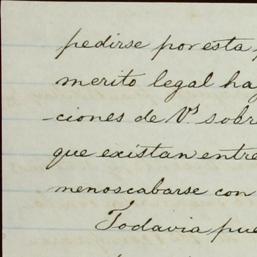 pedirse por esta
merito legal ha
-ciones de Vs. sobr
que existan entre
menoscabarse con
Todavia pue